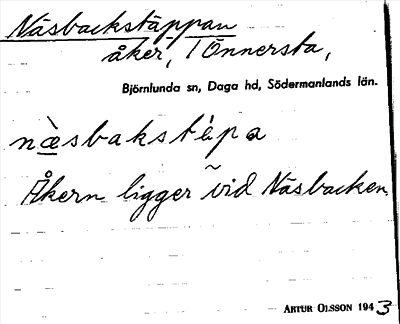 Näsbackstäppan
åker, i Önnersta,
Björnlunda sn, Daga hd, Södermanlands län.
næ̀sbakstɛ̀pa
Åkern ligger vid Näsbacken.
ARTUR OLSSON 1943